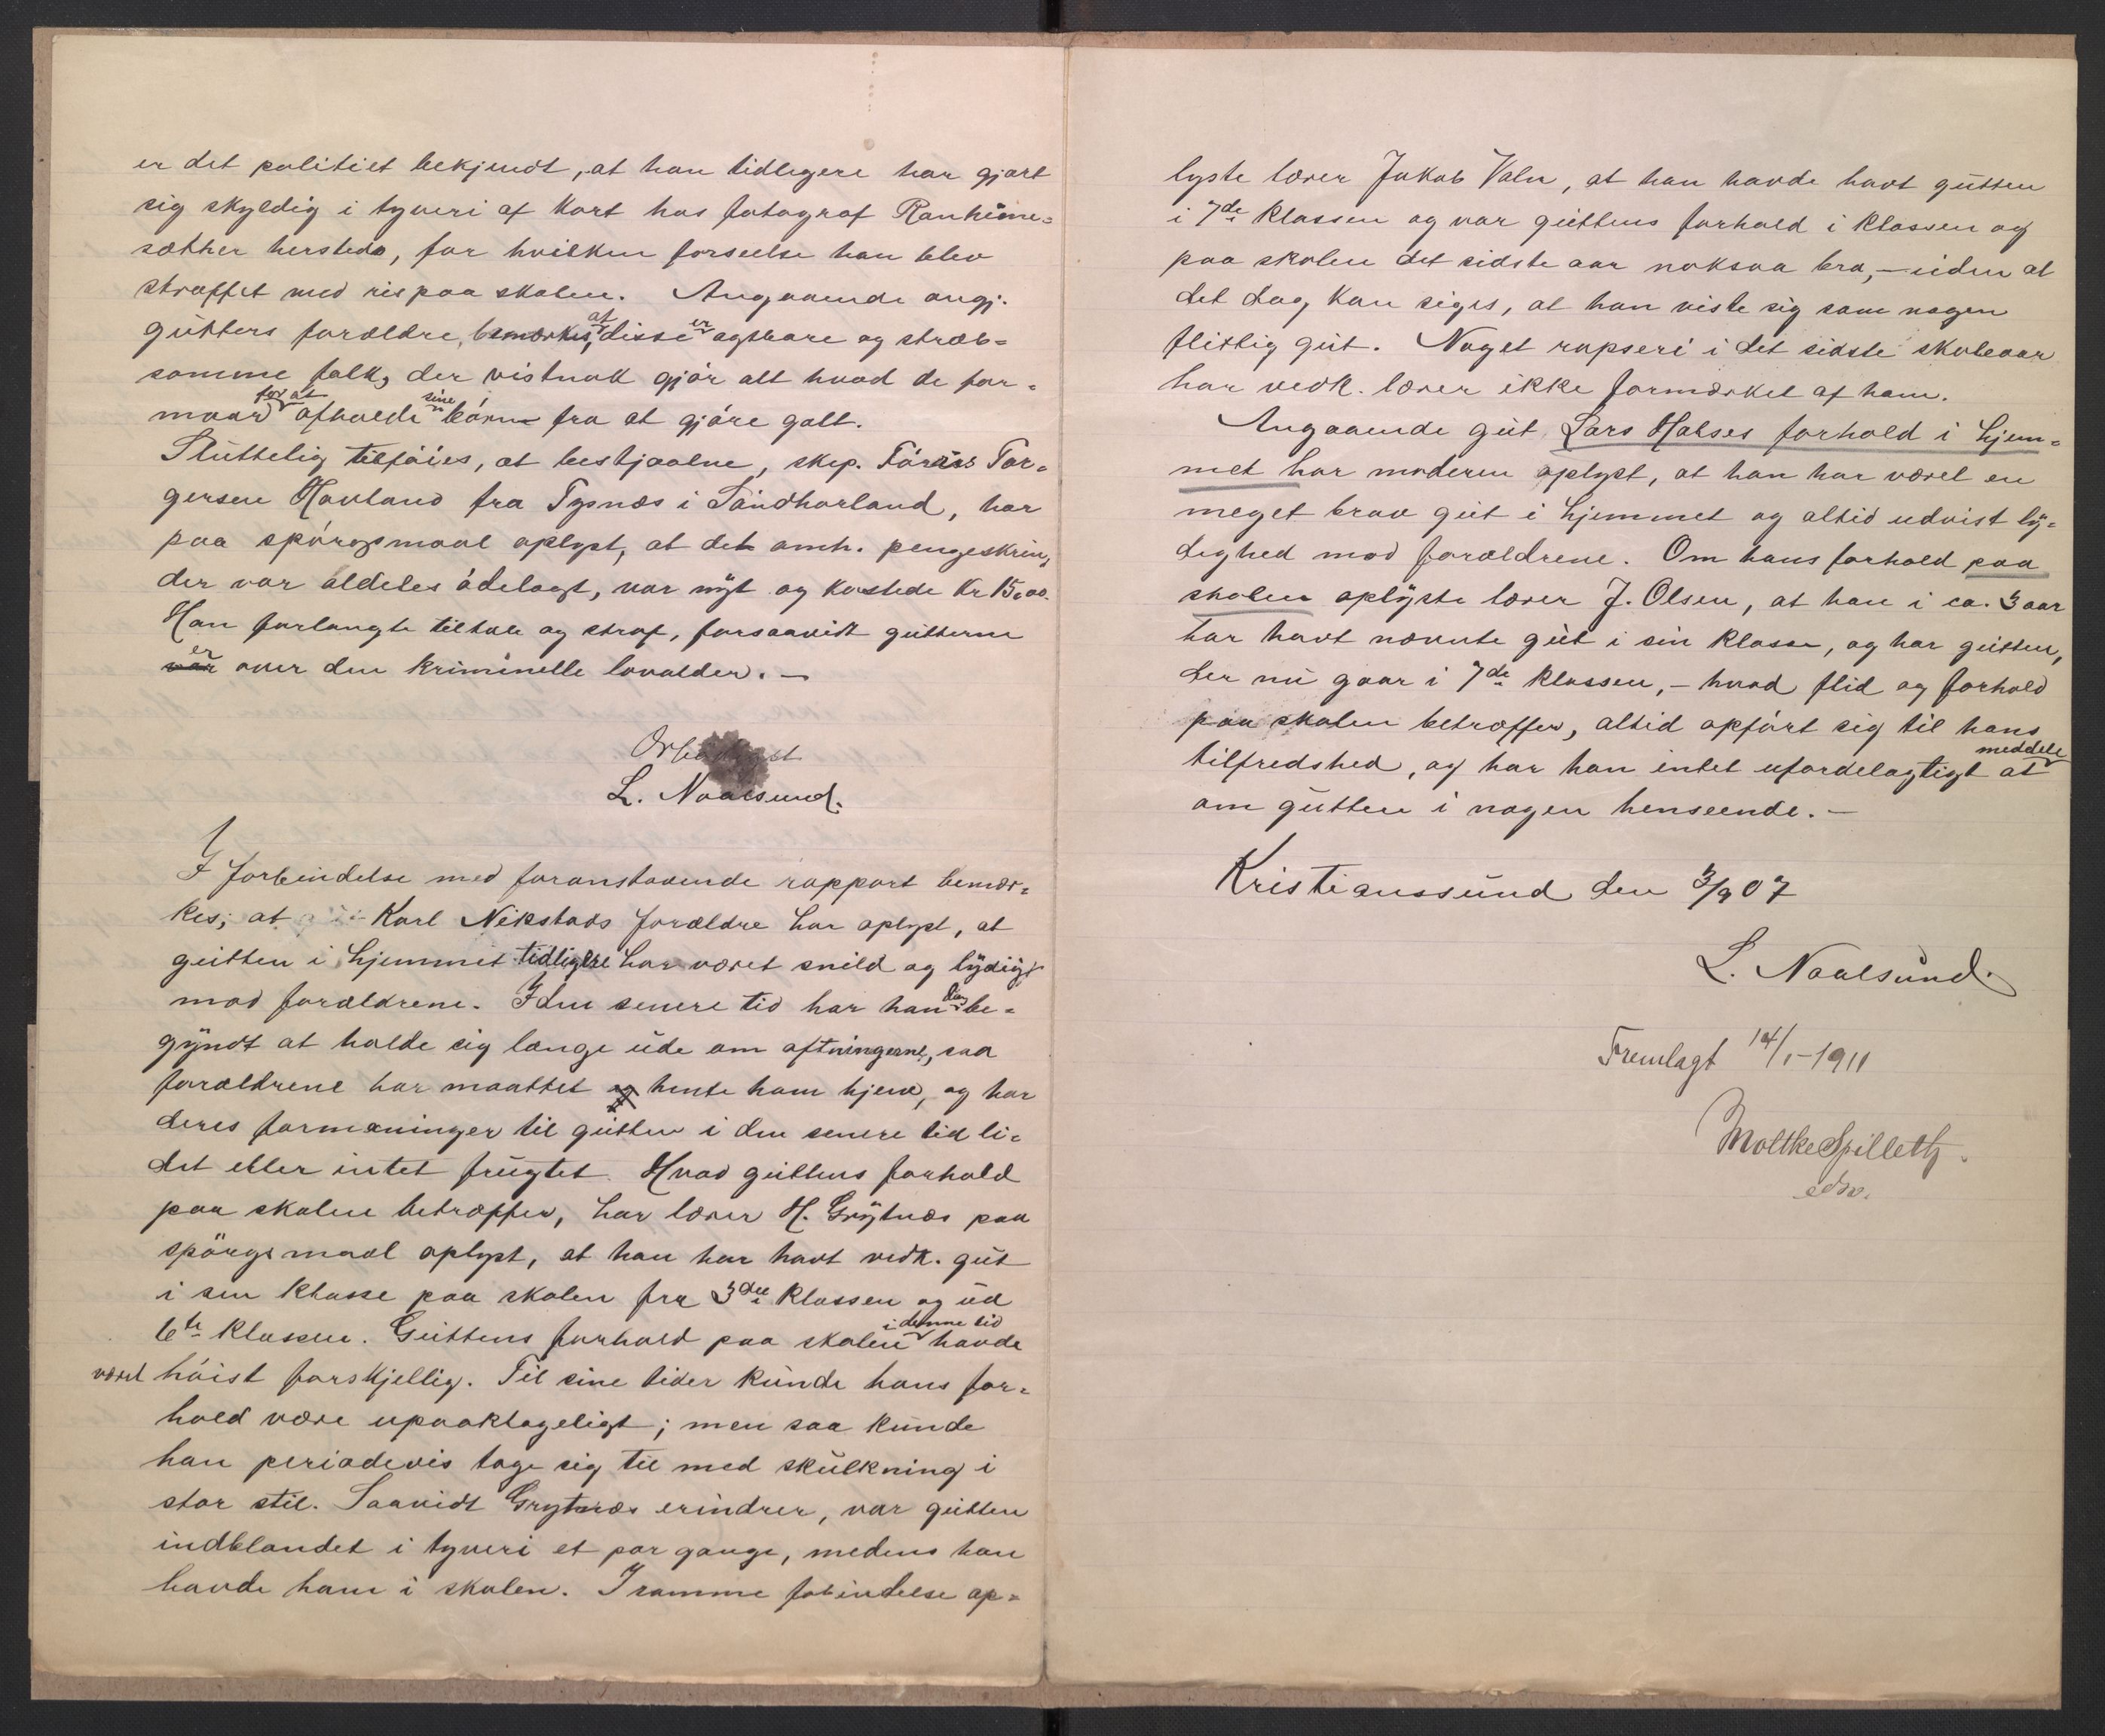 er det politiet bekjendt, at han tidligere har gjort
sig skyldig i tyveri af kort hos fotograf Ranheime-
sæther hersteds, for hvilken forseelse han blev
straffet med ris paa skolen. Angaaende angj.
gutters forældre, bemærkes, at disse er agtbare og stræb-
somme folk, der vistnok gjör alt hvad de for-
maar for at afholde sine börn fra at gjöre galt.
Sluttelig tilföies, at bestjaalne, skip. Tor-
gersen Havland fra Tysnæs i Söndhorland, har
paa spörgsmaal oplyst, at det omh. pengeskrin,
der var aldeles ödelagt, var nyt og kostede Kr 15,00.
Han forlangte tiltale og straf, forsaavidt gutterne
er over den kriminelle lovalder. —
Orbödigst
L. Naalsund.
I forbindelse med foranstaaende rapport bemær-
kes, at Karl Nikstads forældre har oplyst, at
gutten i hjemmet tidligere har været snild og lydig
mod forældrene. I den senere tid har han dog be-
gyndt at holde sig længe ude om aftningerne, saa
forældrene har maattet hente ham hjem, og har
deres formaninger til gutten i den senere tid li-
det eller intet frugtet. Hvad guttens forhold
paa skolen betræffer, har lærer H. Grytnæs paa
spörgsmaal oplyst, at han har havt vedk. gut
i sin klasse paa skolen fra 3die klassen og ud
6te klassen. Guttens forhold paa skolen i denne tid havde
været höist forskjellig. Til sine tider kunde hans for-
hold være upaaklageligt; men saa kunde
han periodevis tage sig til med skulkning i
stor stil. Saavidt Grytnæs erindrer, var gutten
indblandet i tyveri et par gange, medens han
havde ham i skolen. I samme fobindelse op-
lyste lærer Jakob Valn, at han havde havt gutten
i 7de klassen og var guttens forhold i klassen og
paa skolen det sidste aar noksaa bra, — uden at
det dog kan siges, at han viste sig som nogen
flittig gut. Noget rapseri i det sidste skoleaar
har vedk. lærer ikke formærket af ham.
Angaaende gut Lars Halses forhold i hjem-
met har moderen oplyst, at han har været en
meget brav gut i hjemmet og altid udvist ly-
dighed mod forældrene. Om hans forhold paa
skolen oplyste lærer J. Olsen, at han i ca. 3 aar
har havt nævnte gut i sin klasse, og har gutten,
der nu gaar i 7de klassen, — hvad flid og forhold
paa skolen betræffer, altid opfört sig til hans
tilfredshed, og har han intet ufordelagtigt at meddele
om gutten i nogen henseende. —
Kristianssund den 3/9 07
L. Naalsund.
Fremlagt 14/1-1911
Moltke